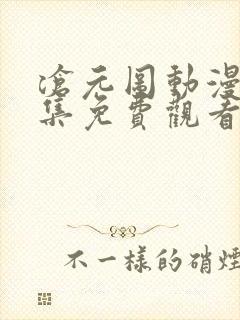 滄元圖動漫
集免費觀看
不一樣的硝煙